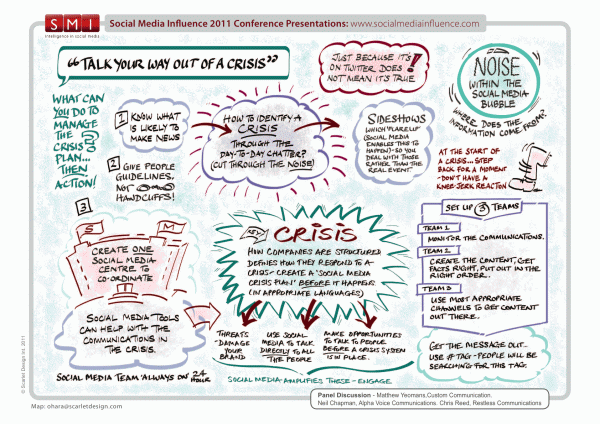 SMI
intelligence in social media
Social Media Influence 2011 Conference Presentations: www.socialmediainfluence.com
"TALK YOUR WAY OUT OF A CRISIS"
JUST BECAUSE IT'S
ON TWITTER DOES
NOT MEAN IT'S TRUE!
NOISE
WITHIN THE
SOCIAL MEDIA
BUBBLE
WHERE DOES THE
INFORMATION COME FROM?
WHAT CAN
YOU DO TO
MANAGE
THE
CRISIS?
PLAN...
THEN
ACTION!
1 KNOW WHAT
IS LIKELY TO
MAKE NEWS
2 GIVE PEOPLE
GUIDELINES,
NOT
HANDCUFFS!
HOW TO IDENTIFY A
CRISIS
THROUGH THE
DAY-TO-DAY CHATTER?
(CUT THROUGH THE NOISE)
SIDESHOWS
WHICH 'FLARE UP'
(SOCIAL MEDIA
ENABLES THIS TO
HAPPEN) - SO YOU
DEAL WITH THOSE
RATHER THAN THE
REAL EVENT
AT THE START OF
A CRISIS... STEP
BACK FOR A MOMENT
- DON'T HAVE A
KNEE-JERK REACTION
3
S M
CREATE ONE
SOCIAL MEDIA
CENTRE TO
CO-ORDINATE
SOCIAL MEDIA TOOLS
CAN HELP WITH THE
COMMUNICATIONS IN
THE CRISIS.
SOCIAL MEDIA TEAM 'ALWAYS ON' 24 HOUR
KEY CRISIS
HOW COMPANIES ARE STRUCTURED
DEFINES HOW THEY RESPOND TO A
CRISIS - CREATE A 'SOCIAL MEDIA
CRISIS PLAN' BEFORE IT HAPPENS
(IN APPROPRIATE LANGUAGES)
THREATS -
DAMAGE
YOUR
BRAND
USE SOCIAL
MEDIA TO TALK
DIRECTLY TO ALL
THE PEOPLE
MAKE OPPORTUNITIES
TO TALK TO PEOPLE
BEFORE A CRISIS SYSTEM
IS IN PLACE.
SOCIAL MEDIA AMPLIFIES THESE - ENGAGE
SET UP 3 TEAMS
TEAM 1
MONITOR THE COMMUNICATIONS.
TEAM 2
CREATE THE CONTENT, GET
FACTS RIGHT, PUT OUT IN THE
RIGHT ORDER.
TEAM 3
USE MOST APPROPRIATE
CHANNELS TO GET CONTENT
OUT THERE.
GET THE MESSAGE OUT...
USE # TAG - PEOPLE WILL BE
SEARCHING FOR THIS TAG.
© Scarlet Design Int. 2011
Map: ohara@scarletdesign.com
Panel Discussion - Matthew Yeomans, Custom Communication.
Neil Chapman, Alpha Voice Communications. Chris Reed, Restless Communications